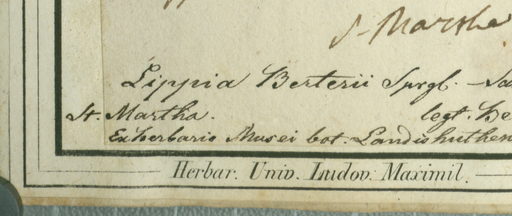 S. Martha
Lippia Berterii Sprgl. –
St. Martha. legt. Be
Ex herbario Musei bot. Landishuthen
Herbar. Univ. Ludov. Maximil.